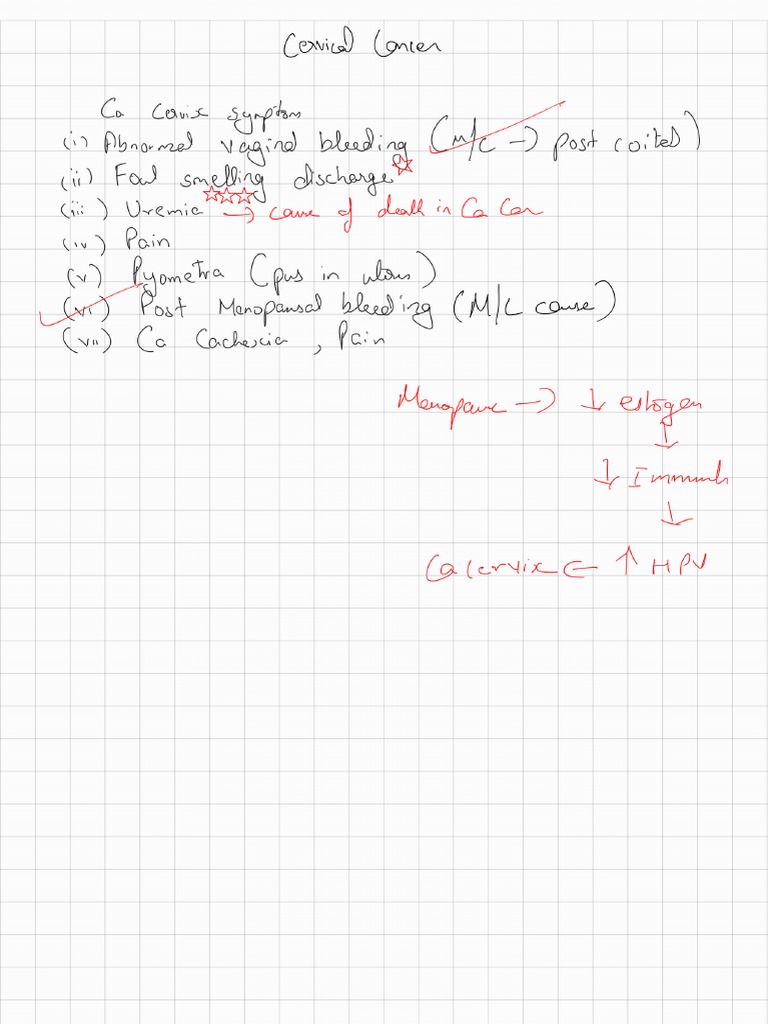 Cervical Cancer
Ca Cervix symptoms
(i) Abnormal vaginal bleeding (M/C → post coital)
(ii) Foul smelling discharge ☆
(iii) Uremia ☆☆☆ → cause of death in Ca Cer
(iv) Pain
(v) Pyometra (pus in uterus)
(vi) Post Menopausal bleeding (M/C cause)
(vii) Ca Cachexia, Pain
Menopause → ↓ estrogen
↓
↓
↓
Ca Cervix ← ↑ HPV